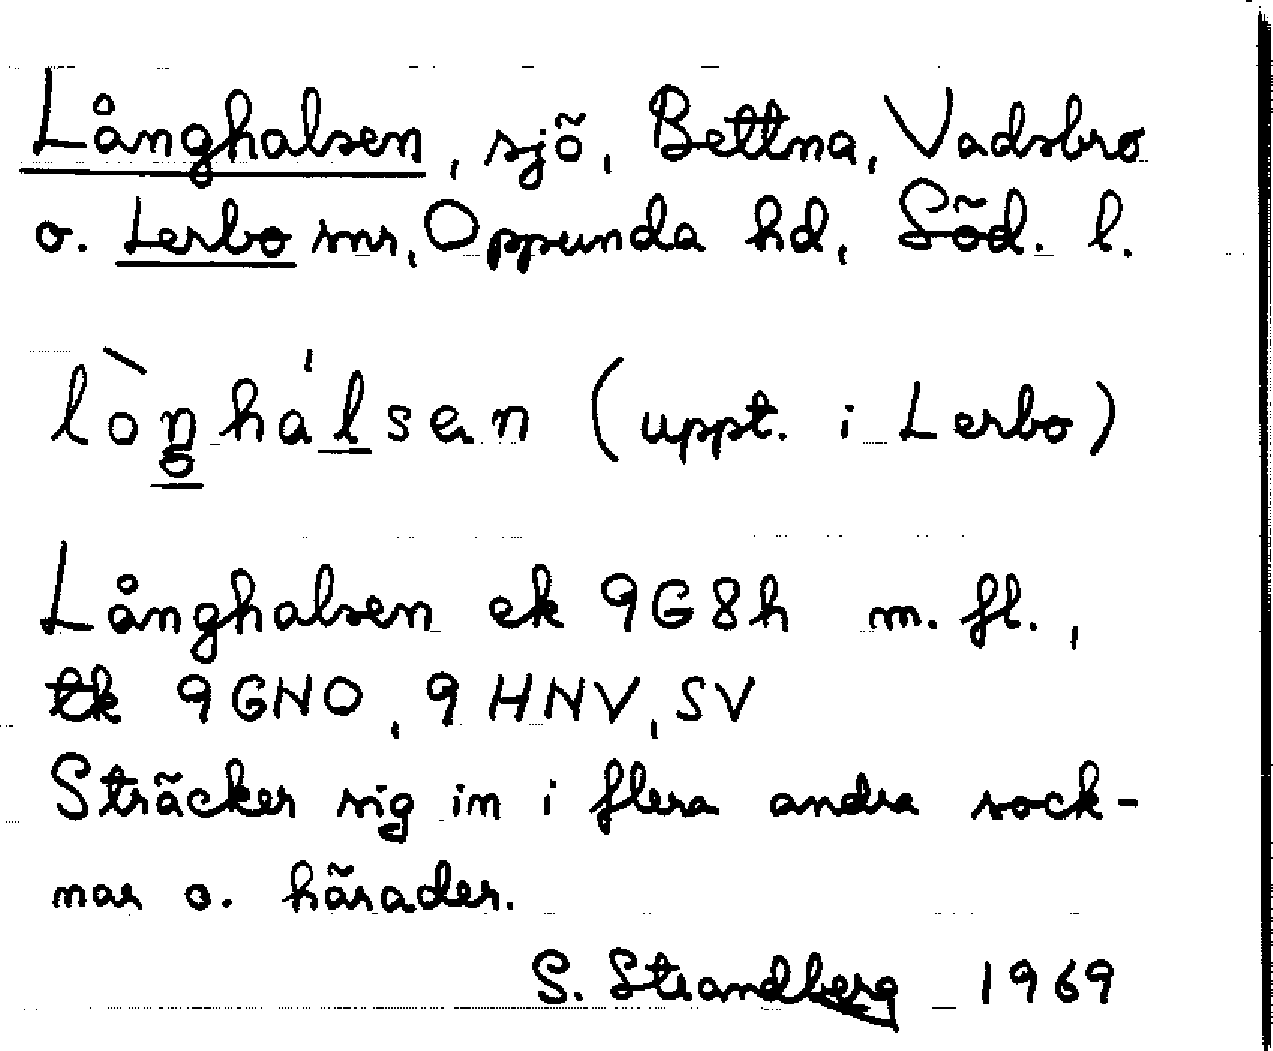 Långhalsen, sjö, Bettna, Vadsbro
o. Lerbo snr, Oppunda hd, Söd. l.
lò̀ŋhálsen (uppt. i Lerbo)
Långhalsen ek 9G8h m. fl.,
tk 9GNO, 9HNV, SV
Sträcker sig in i flera andra sock-
nar o. härader.
S. Strandberg 1969